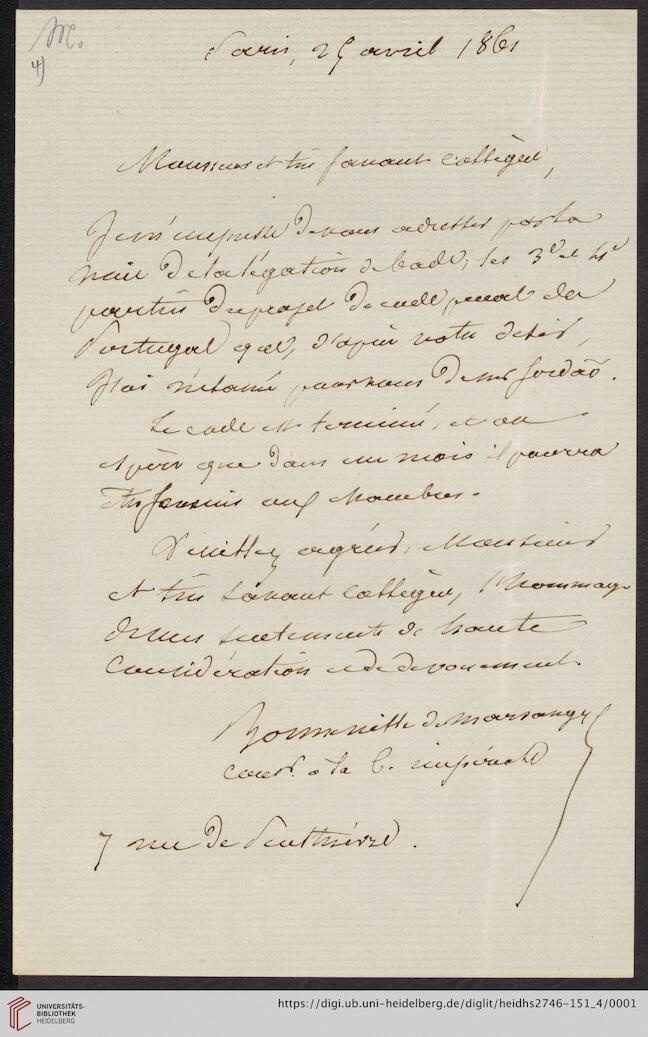 M.
4)
Paris, 25 avril 1861
Monsieur et très savant collègue,
Je m'empresse de vous adresser par la
voie de la légation de Bade, les 3e et 4e
parties du projet de code pénal de
Portugal que, d'après votre désir,
j'ai réclamé pour vous de Mr Jordaõ.
Le code est terminé, et on
espère que dans un mois il pourra
être soumis aux chambres.
Veuillez agréer, Monsieur
et très savant collègue, l'hommage
de mes sentiments de haute
considération et de dévouement.
Bonneville de Marsangy
Coner. à la C. impériale
7 rue de Penthièvre.
UNIVERSITÄTS-
BIBLIOTHEK
HEIDELBERG
https://digi.ub.uni-heidelberg.de/diglit/heidhs2746-151_4/0001